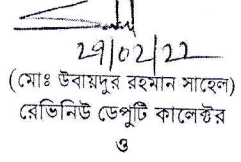 ২৭/০২/২২
(মোঃ উবায়দুর রহমান সাহেল)
রেভিনিউ ডেপুটি কালেক্টর
ও